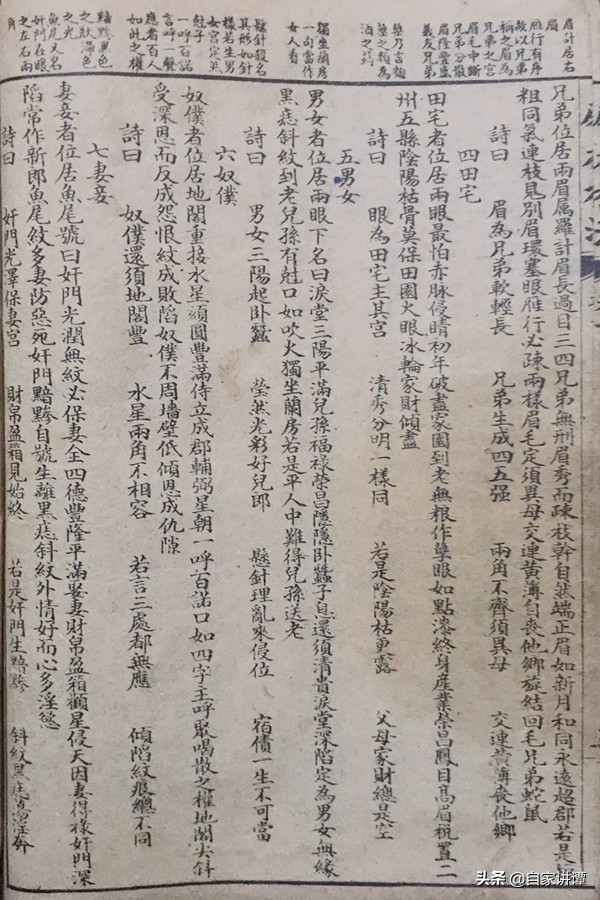 眉計居右
眉
雁行有序
故以兄弟
稱之眉為
兄弟之宮
眉毛中斷
兄弟分散
眉隆豐盛
義友兄弟
之類為
酒之药
獨坐蘭房
一句當作
女人看
懸針殺名
其形如針
樣若生男
女宮定無
尅子
一呼百諾
言呼一聲
應者百人
如此之權
黯黪黑色
之狀滯色
之光
魚尾又名
奸門在眼
之左右兩
角
兄弟位居兩眉属羅計眉長過目三四兄弟無刑眉秀而疎枝幹自然端正眉如新月和同永遠超郡若是
粗同氣連枝見別眉環塞眼雁行必疎兩樣眉毛定須異母交連黄薄自喪他鄉旋結回毛兄弟蛇鼠
詩曰 眉為兄弟軟輕長 兄弟生成四五强 兩角不齊須異母 交連黄薄喪他鄉
四田宅
田宅者位居兩眼最怕赤脉侵睛初年破盡家園到老無粮作孽眼如點漆終身産業榮昌鳳目高眉税置二
州五縣陰陽枯骨莫保田園火眼冰輪家財傾盡
詩曰 眼為田宅主其宮 清秀分明一樣同 若是陰陽枯更露 父母家財總是空
五男女
男女者位居兩眼下名曰淚堂三陽平滿兒孫福祿榮昌隱隱卧蠶子息還須清貴淚堂深陷定為男女無緣
黑痣斜紋到老兒孫有尅口如吹火獨坐蘭房若是平人中難得兒孫送老
詩曰 男女三陽起卧蠶 瑩然光彩好兒郎 懸針理亂來侵位 宿債一生不可當
六奴僕
奴僕者位居地閣重接水星頦圓豐滿侍立成郡輔弼星朝一呼百諾口如四字主呼聚喝散之權地閣尖斜
受深恩而反成怨恨紋成敗陷奴僕不周墻壁低傾恩成仇隙
詩曰 奴僕還須地閣豐 水星兩角不相容 若言三處都無應 傾陷紋痕總不同
七妻妾
妻妾者位居魚尾號曰奸門光潤無紋必保妻全四德豐隆平滿娶妻財帛盈箱顴星侵天因妻得祿奸門深
陷常作新郎魚尾紋多妻防惡死奸門黯黪自號生離黑痣斜紋外情好而心多淫慾
詩曰 奸門光澤保妻宮 財帛盈箱見始終 若是奸門生黯黪 斜紋黑痣
头条 @自家讲谭